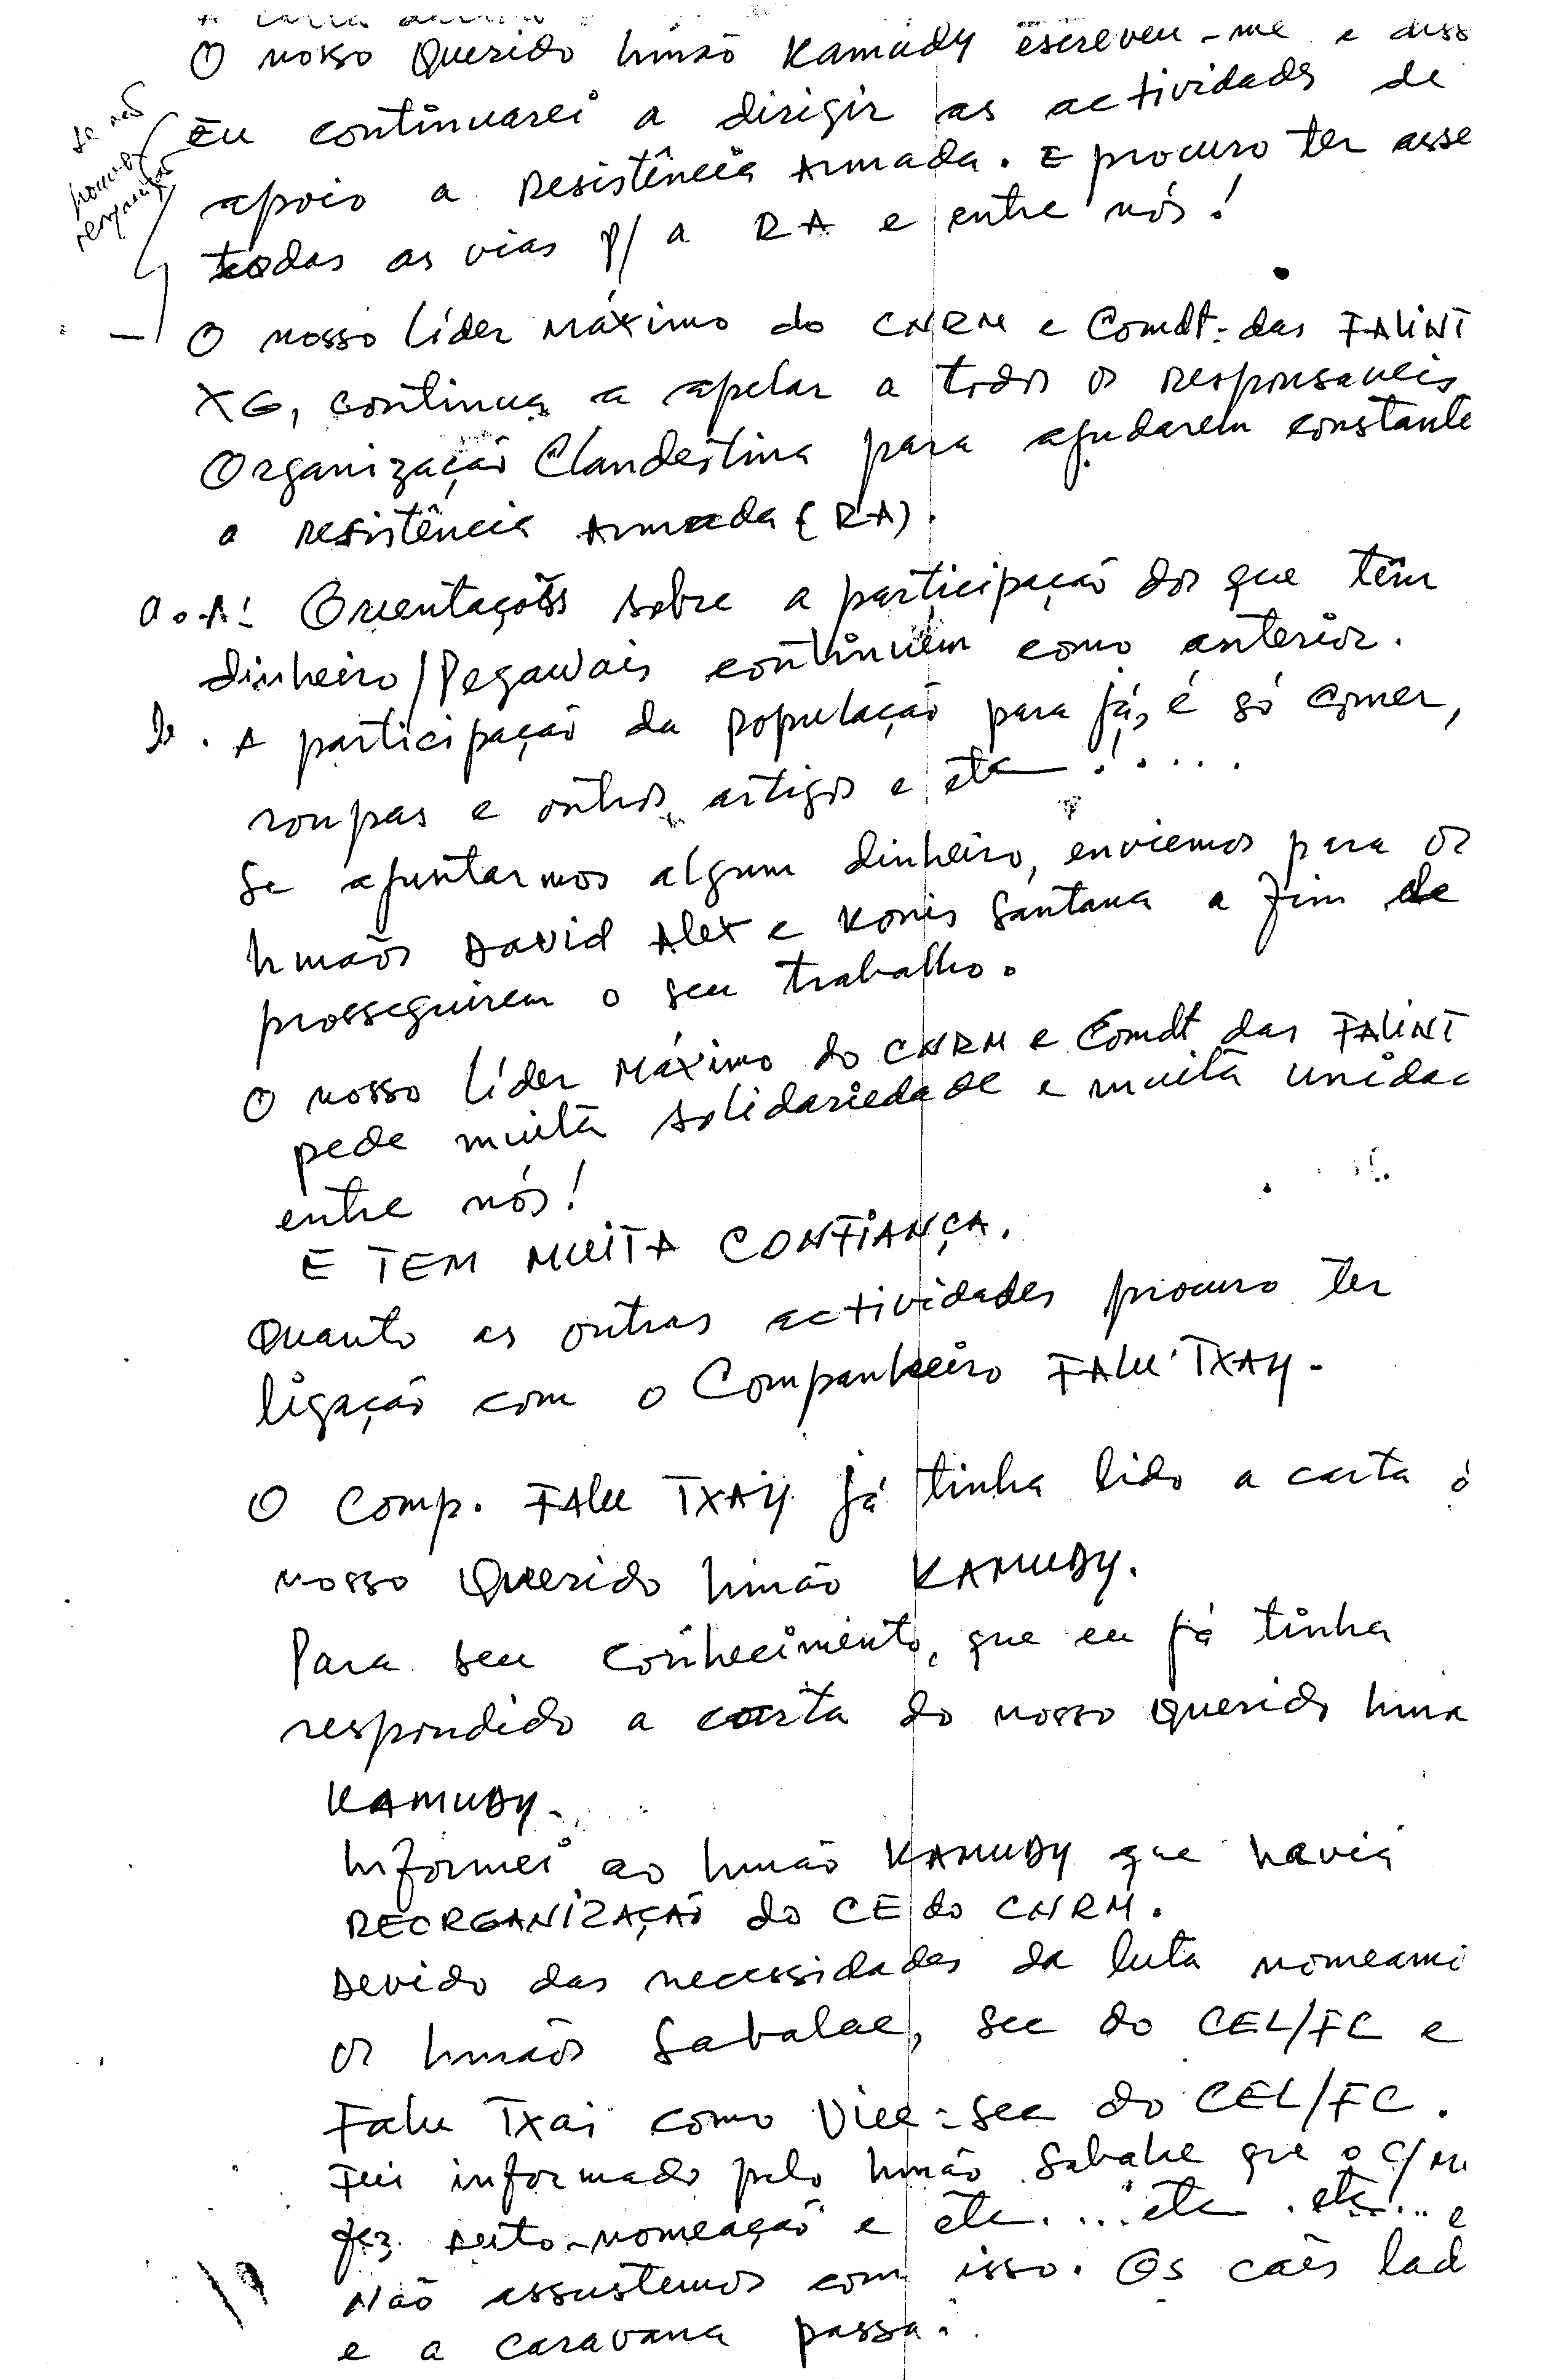 O nosso Querido Irmão Kamudy escreveu-me e diss
Eu continuarei a dirigir as actividads de
apoio a Resistência Armada. E procuro ter asse
todas as vias p/ a RA e entre nós!
se não
houver
O nosso líder Máximo do CNRM e Comdt. das FALINT
XG, continua a apelar a todos os responsaveis
Organização Clandestina para ajudarem constante
a resistência Armada (RA).
a. A: Orientações sobre a participação dos que têm
dinheiro/Pegawais continuem como anterior.
b. A participação da população para já, é só comer,
roupas e outros artigos e etc !....
Se ajuntarmos algum dinheiro, enviemos para os
Irmãos David Alex e Konis Santana a fim de
prosseguirem o seu trabalho.
O nosso líder Máximo do CNRM e Comdt das FALINT
pede muita solidariedade e muita unidad
entre nós!
E TEM MUITA CONFIANÇA.
Quanto as outras actividades procuro ter
ligação com o Companheiro FALU TXAY.
O Comp. FALU TXAY já tinha lido a carta d
nosso Querido Irmão KAMUDY.
Para seu conhecimento, que eu já tinha
respondido a carta do nosso Querido Irmã
KAMUDY.
Informei ao Irmão KAMUDY que havia
REORGANIZAÇÃO do CE do CNRM.
Devido das necessidades da luta nomeamo
os Irmãos Sabalae, Sec do CEL/FC e
Falu Txai como Vice-Sec do CEL/FC.
Fui informado pelo Irmão Sabalae que o C/M
fez auto-nomeação e etc....etc .etc... e
Não assustemos com isso. Os cães lad
e a caravana passa.